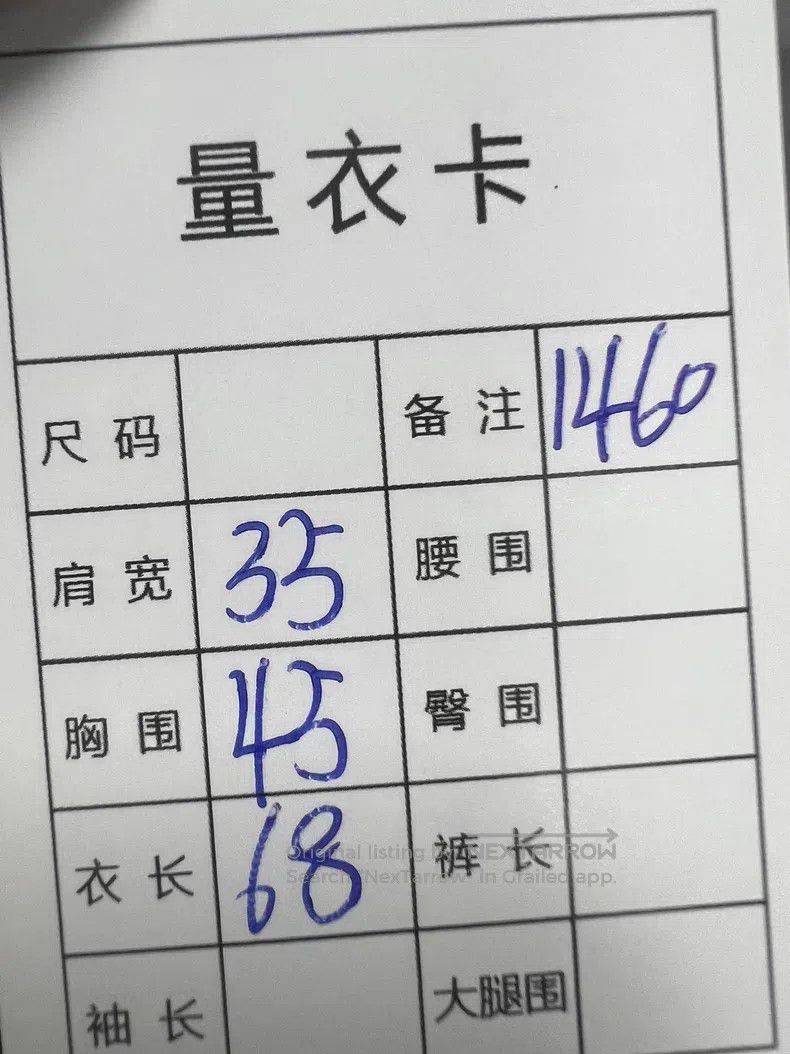 量衣卡
尺码 备注 1460
肩宽 35 腰围
胸围 45 臀围
衣长 68 裤长
Original listing by NEXTARROW
Search "NexTarrow" in Grailed app.
袖长 大腿围